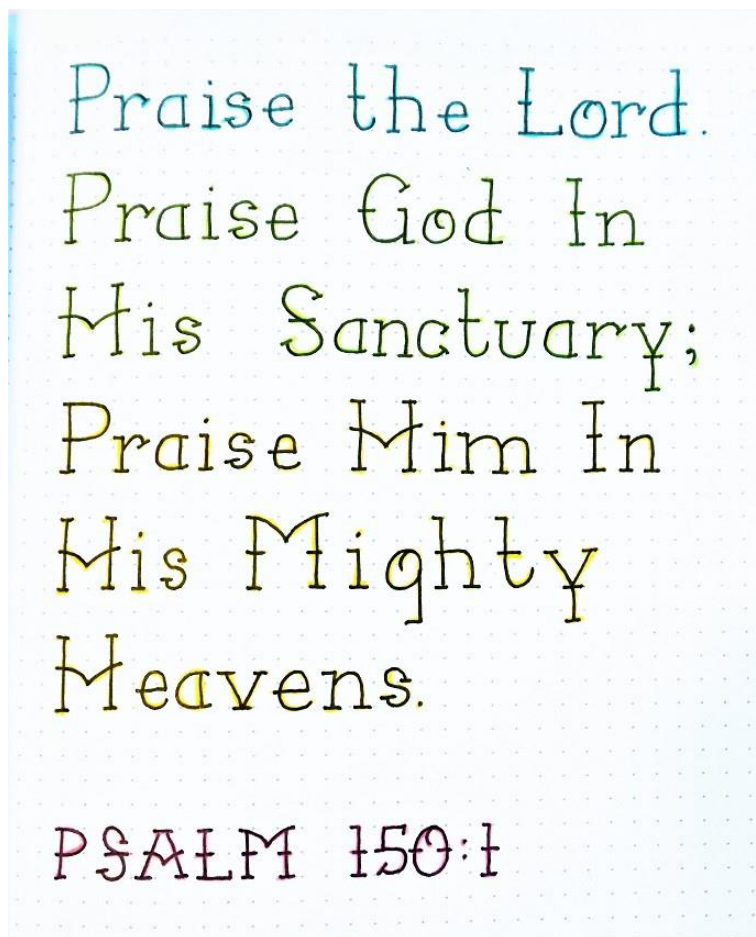 Praise the Lord.
Praise God In
His Sanctuary;
Praise Him In
His Mighty
Heavens.
PSALM 150:1